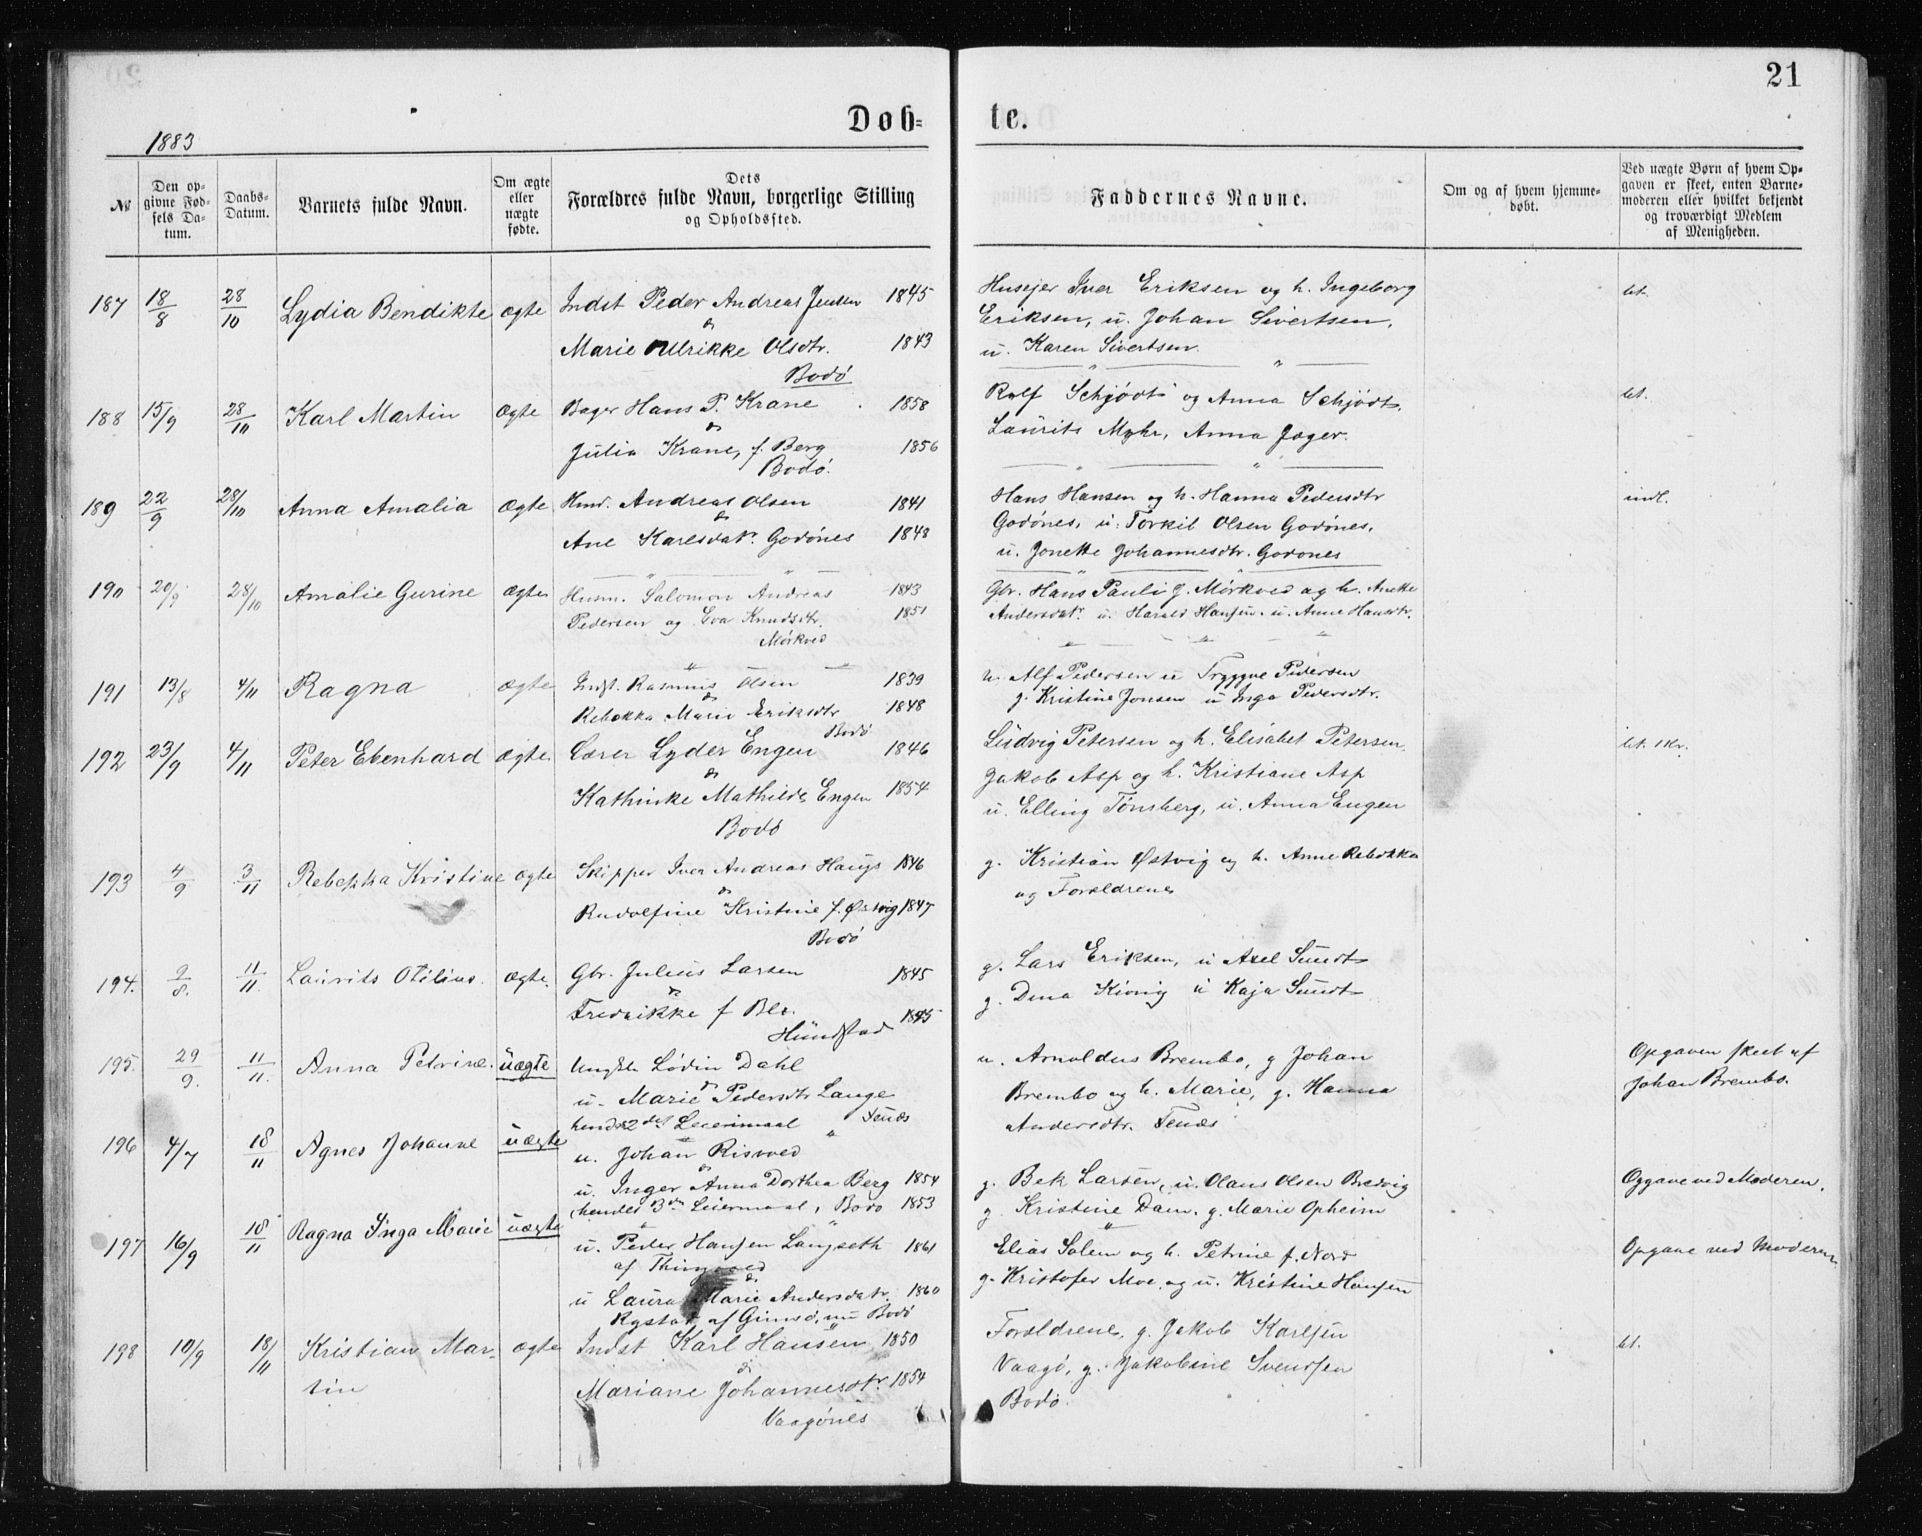 21
Døb=
te.
1883
№
Den op-
givne Fød-
sels Da-
tum.
Daabs-
Datum.
Barnets fulde Navn.
Om ægte
eller
uægte
fødte.
Dets
Forældres fulde Navn, borgerlige Stilling
og Opholdssted.
Faddernes Navne.
Om og af hvem hjemme-
døbt.
Ved uægte Børn af hvem Op-
gaven er skeet, enten Barne-
moderen eller hvilket bekjendt
og troværdigt Medlem
af Menigheden.
187 18/8 28/10 Lydia Bendikte ægte Indst Peder Andreas Jensen 1845
og
Marie Ulrikke Olsdtr. 1843
Bodø
Husejer Iver Eriksen og h. Ingeborg
Eriksen, u. Johan Sivertsen,
u. Karen Sivertsen.
bt.
188 15/9 28/10 Karl Martin ægte Bager Hans P. Krane 1858
og
Julia Krane, f. Berg 1856
Bodø.
Rolf Schjødt og Anna Schjødt,
Laurits Myhr, Anna Jager.
bt.
189 22/9 28/10 Anna Amalia ægte Hmd. Andreas Olsen 1841
og
Ane Karlsdatr. Godønes 1848
Hans Hansen og h. Hanna Pedersdtr
Godønes, u. Torkil Olsen Godønes,
u. Jonette Johannesdtr. Godønes
indl.
190 20/9 28/10 Amalie Gurine ægte Husm. Salomon Andreas 1843
Pedersen og Eva Knudsdtr. 1851
Mørkved
Gbr. Hans Pauli J. Mørkved og h. Anette
Andersdatr. u. Harald Hansen. u. Anne Hansdtr.
191 13/8 4/11 Ragna ægte Indst. Rasmus Olsen 1839
og
Rebekka Marie Eriksdtr 1848
Bodø
u. Alf Pedersen u Tryggve Pedersen
g. Kristine Jonsen u Inga Pedersdtr.
192 23/9 4/11 Peter Ebenhard ægte Lærer Lyder Engen 1846
og
Kathinke Mathilde Engen 1854
Bodø
Ludvig Petersen og h. Elisabet Petersen.
Jakob Asp og h. Kristiane Asp
u. Elling Tønsberg, u. Anna Engen
bt. 1 Kr.
193 4/9 3/11 Rebekka Kristine ægte Skipper Iver Andreas Haugs 1846
og
Rudolfine Kristine f. Østvig 1847
Bodø
g. Kristian Østvig og h. Anne Rebekka
og Forældrene
194. 9/8. 11/11. Laurits Otilius. ægte. Gbr. Julius Larsen 1845
og
Fredrikke f 1845
Hundstad
g. Lars Eriksen, u Axel Sundt
g. Dina u Kaja Sundt
195. 29/9. 11/11. Anna Petrine. uægte Ungkl Lødin Dahl
og
u. Marie Pedersdtr Lange
hendes 2det Leiermaal Tenæs
u. Arnoldus Brembo, g Johan
Brembo og h. Marie, g. Hanna
Andersdtr. Tenæs
Opgaven skeet af
Johan Brembo.
196 4/7 18/11 Agnes Johanne uægte u. Johan Risvoed
og
u. Inger Anna Dorthea Berg 1854
hendes 3die Leiermaal, Bodø 1853
g. Bek Larsen, u. Olaus Olsen Bredvig
g. Kristine Dam. g. Marie Opheim
Opgave ved Moderen.
197 16/9 18/11 Ragna Inga Marie uægte u. Peder Hansen Langseth 1861
af
og
u Laura Marie Andersdatr. 1860
Rystad af Gimsø, nu Bodø
Elias Salem og h. Petrine f. Nord
g. Kristofer Moe og u. Kristine Hansen
Opgave ved Moderen
198 10/9 18/11 Kristian Mar- ægte Indst Karl Hansen 1850
tin
og
Mariane Johannesdtr. 1854
Vaagønes
Forældrene, g. Jakob Karlsen
Vaagø, g. Jakobine Svendsen
Bodø.
bt.